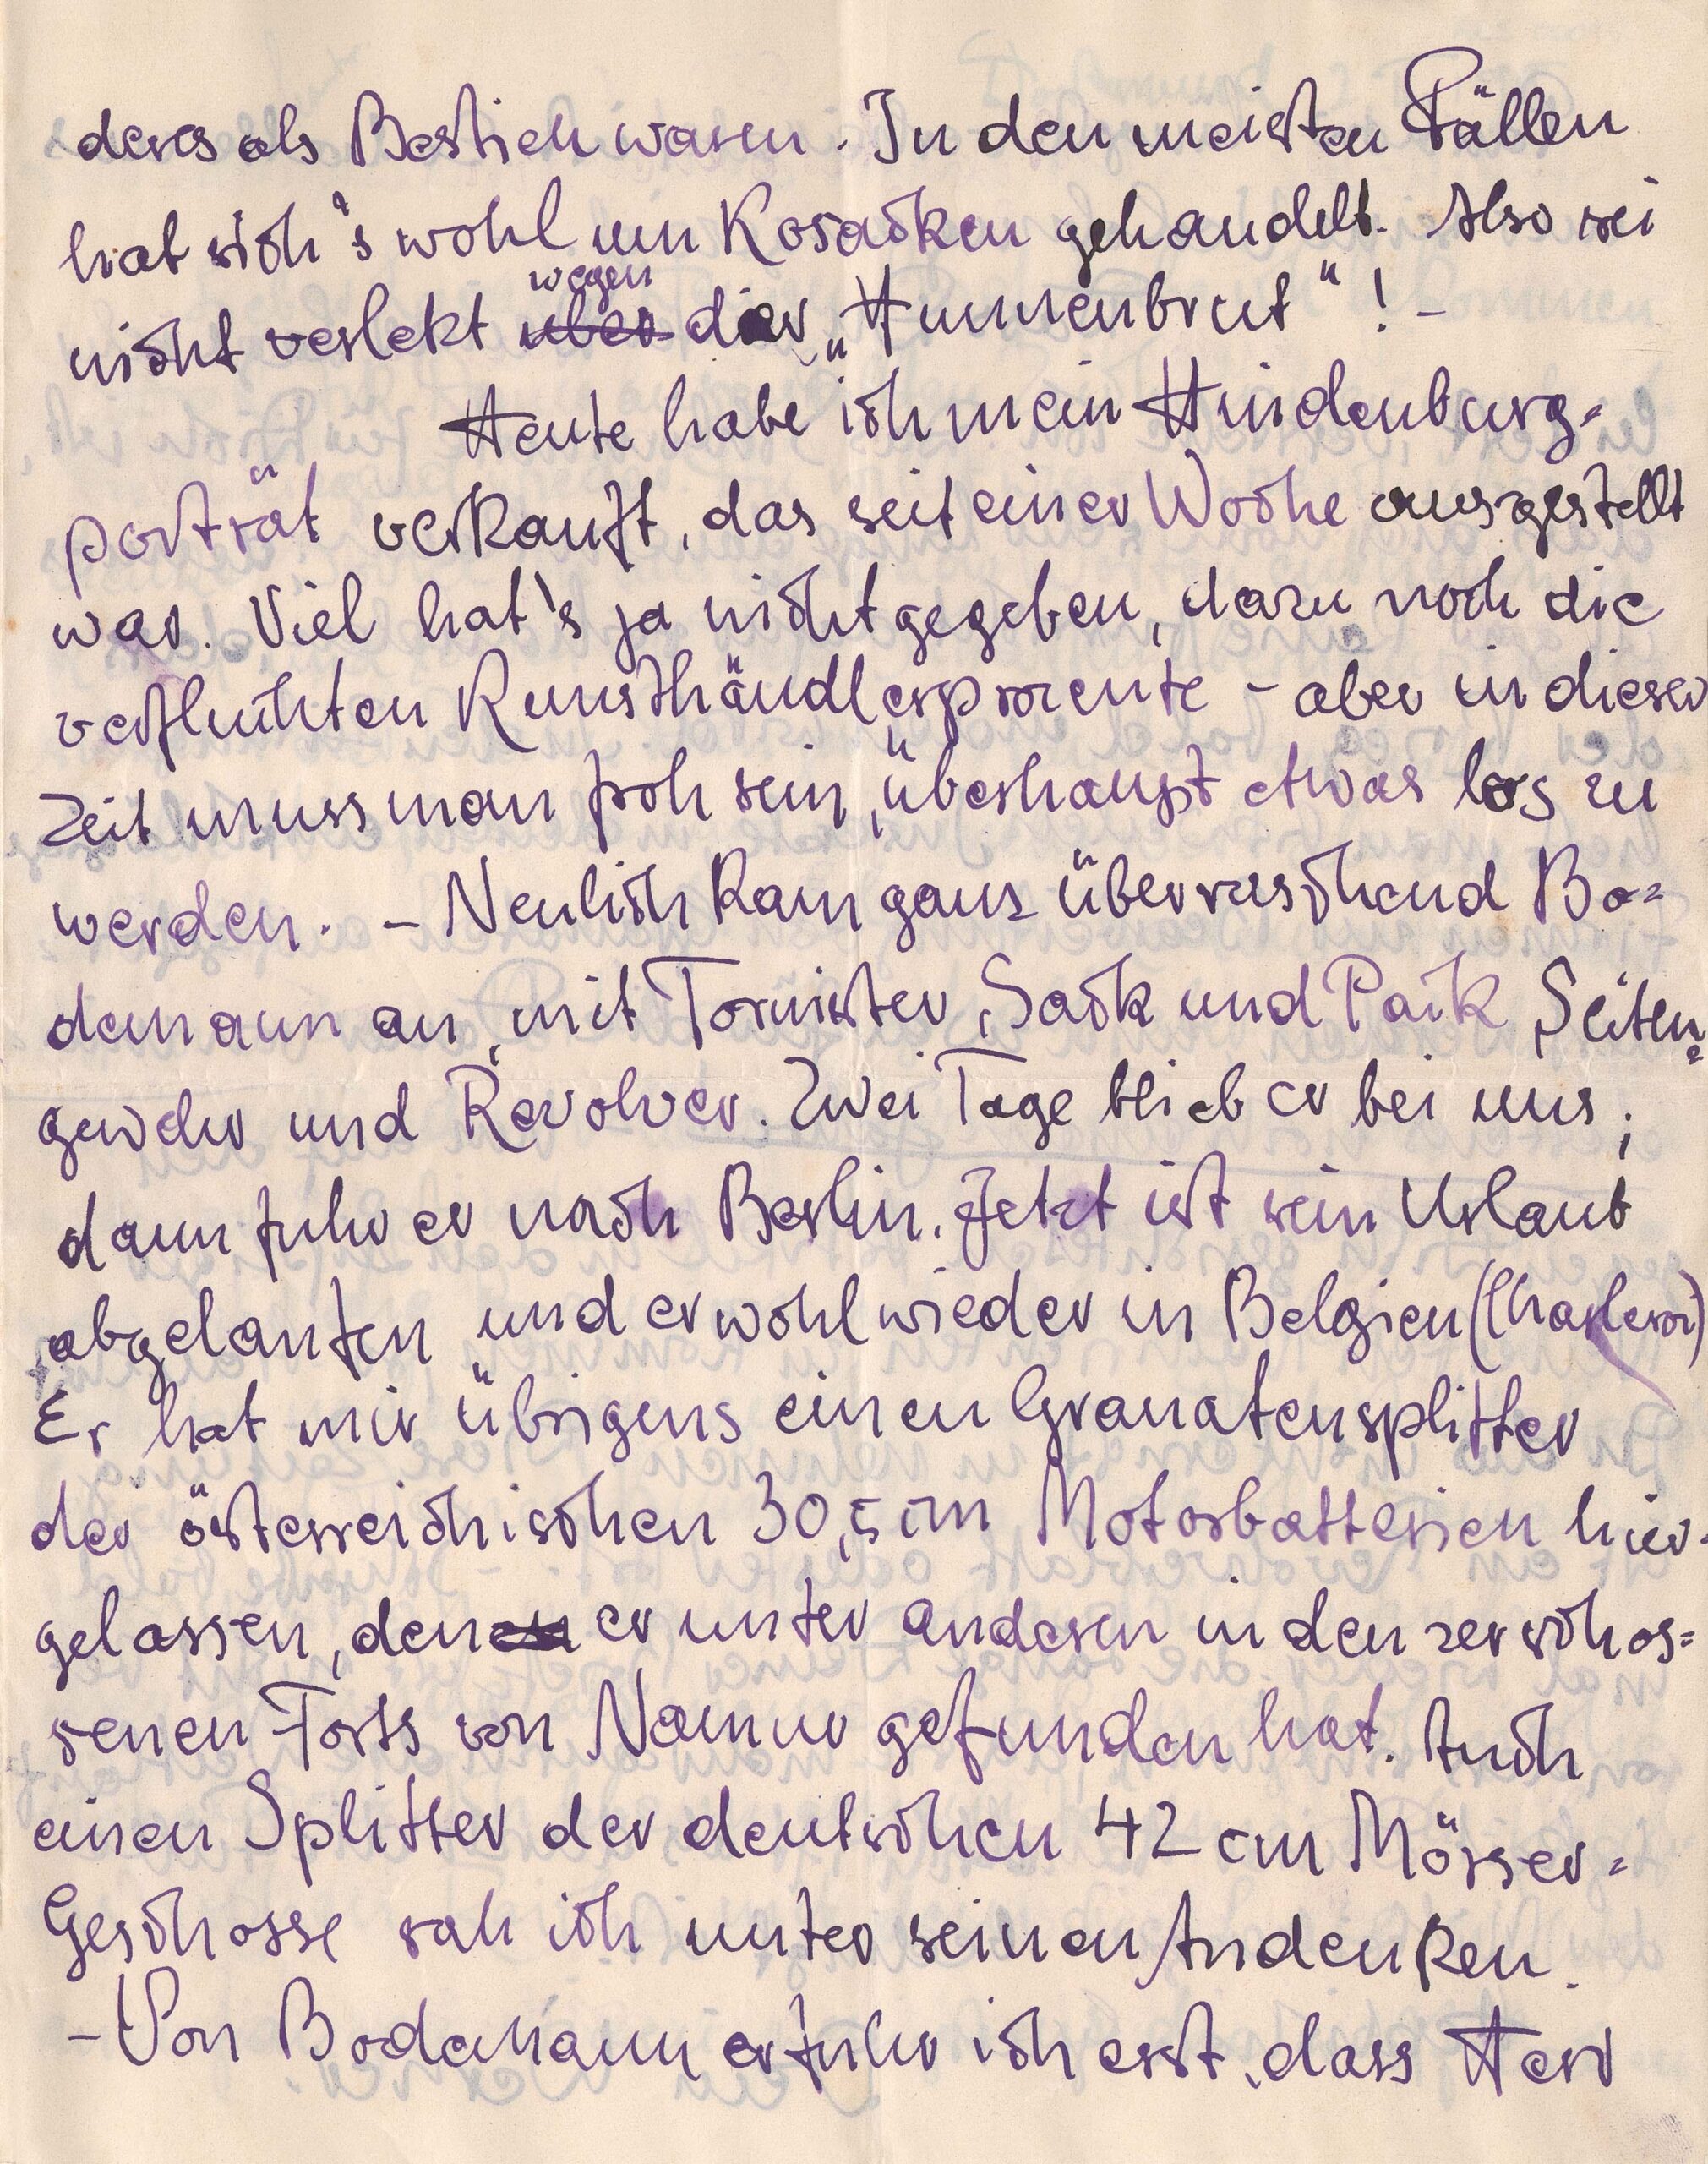 deres als Bestien waren. In den meisten Fällen
hat sich's wohl um Kosacken gehandelt. Also sei
nicht verletzt über wegen der „Hunnenbrut"! –
Heute habe ich mein Hindenburg=
porträt verkauft, das seit einer Woche ausgestellt
war. Viel hat's ja nicht gegeben, dazu noch die
verfluchten Kunsthändlerprozente – aber in dieser
Zeit muss man froh sein, überhaupt etwas los zu
werden. – Neulich kam ganz überraschend Bo=
demann an, mit Tornister, Sack und Pack, Seiten=
gewehr und Revolver. Zwei Tage blieb er bei uns;
dann fuhr er nach Berlin. Jetzt ist sein Urlaub
abgelaufen und er wohl wieder in Belgien (Charleroi)
Er hat mir übrigens einen Granatensplitter
der österreichischen 30,5 cm Motorbatterien hier-
gelassen, den er unter anderen in den zerschos=
senen Forts von Namur gefunden hat. Auch
einen Splitter der deutschen 42 cm Mörser=
Geschosse sah ich unter seinen Andenken.
– Von Bodemann erfuhr ich erst, dass Herr